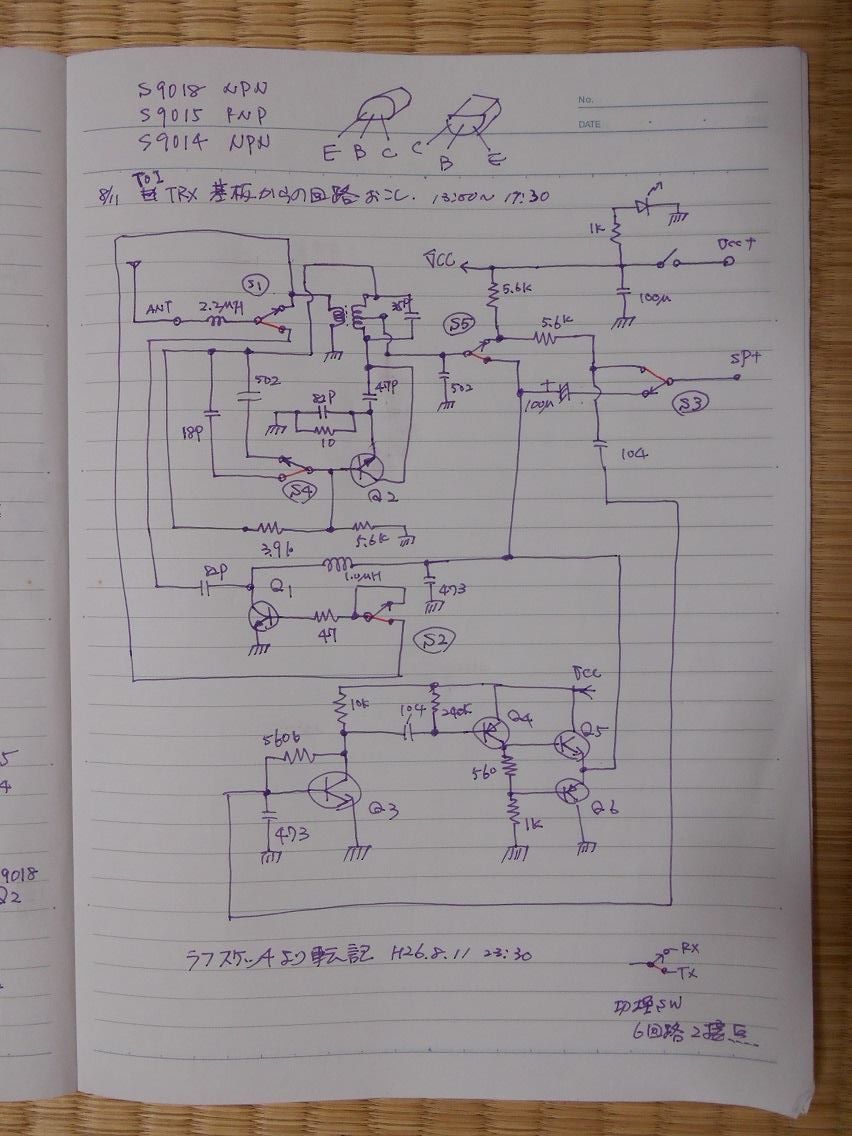 S9018 NPN
S9015 PNP
S9014 NPN
E B C
C B E
No.
DATE
TOI
8/11 TRX 基板からの回路おこし. 13:00~ 17:30
1K
VCC
Vcc+
5.6K
100μ
ANT
2.2μH
S1
S5
5.6K
SP+
502
47P
502
100μ
S3
82P
18P
10
104
S4
Q2
3.9k
5.6K
82P
Q1
1.0μH
473
47
S2
VCC
10K
104
240K
Q4
Q5
560k
560
Q3
Q6
473
1K
9018
Q2
ラフスケッチより転記 H26.8.11 23:30
RX
TX
SW
6回路2接点